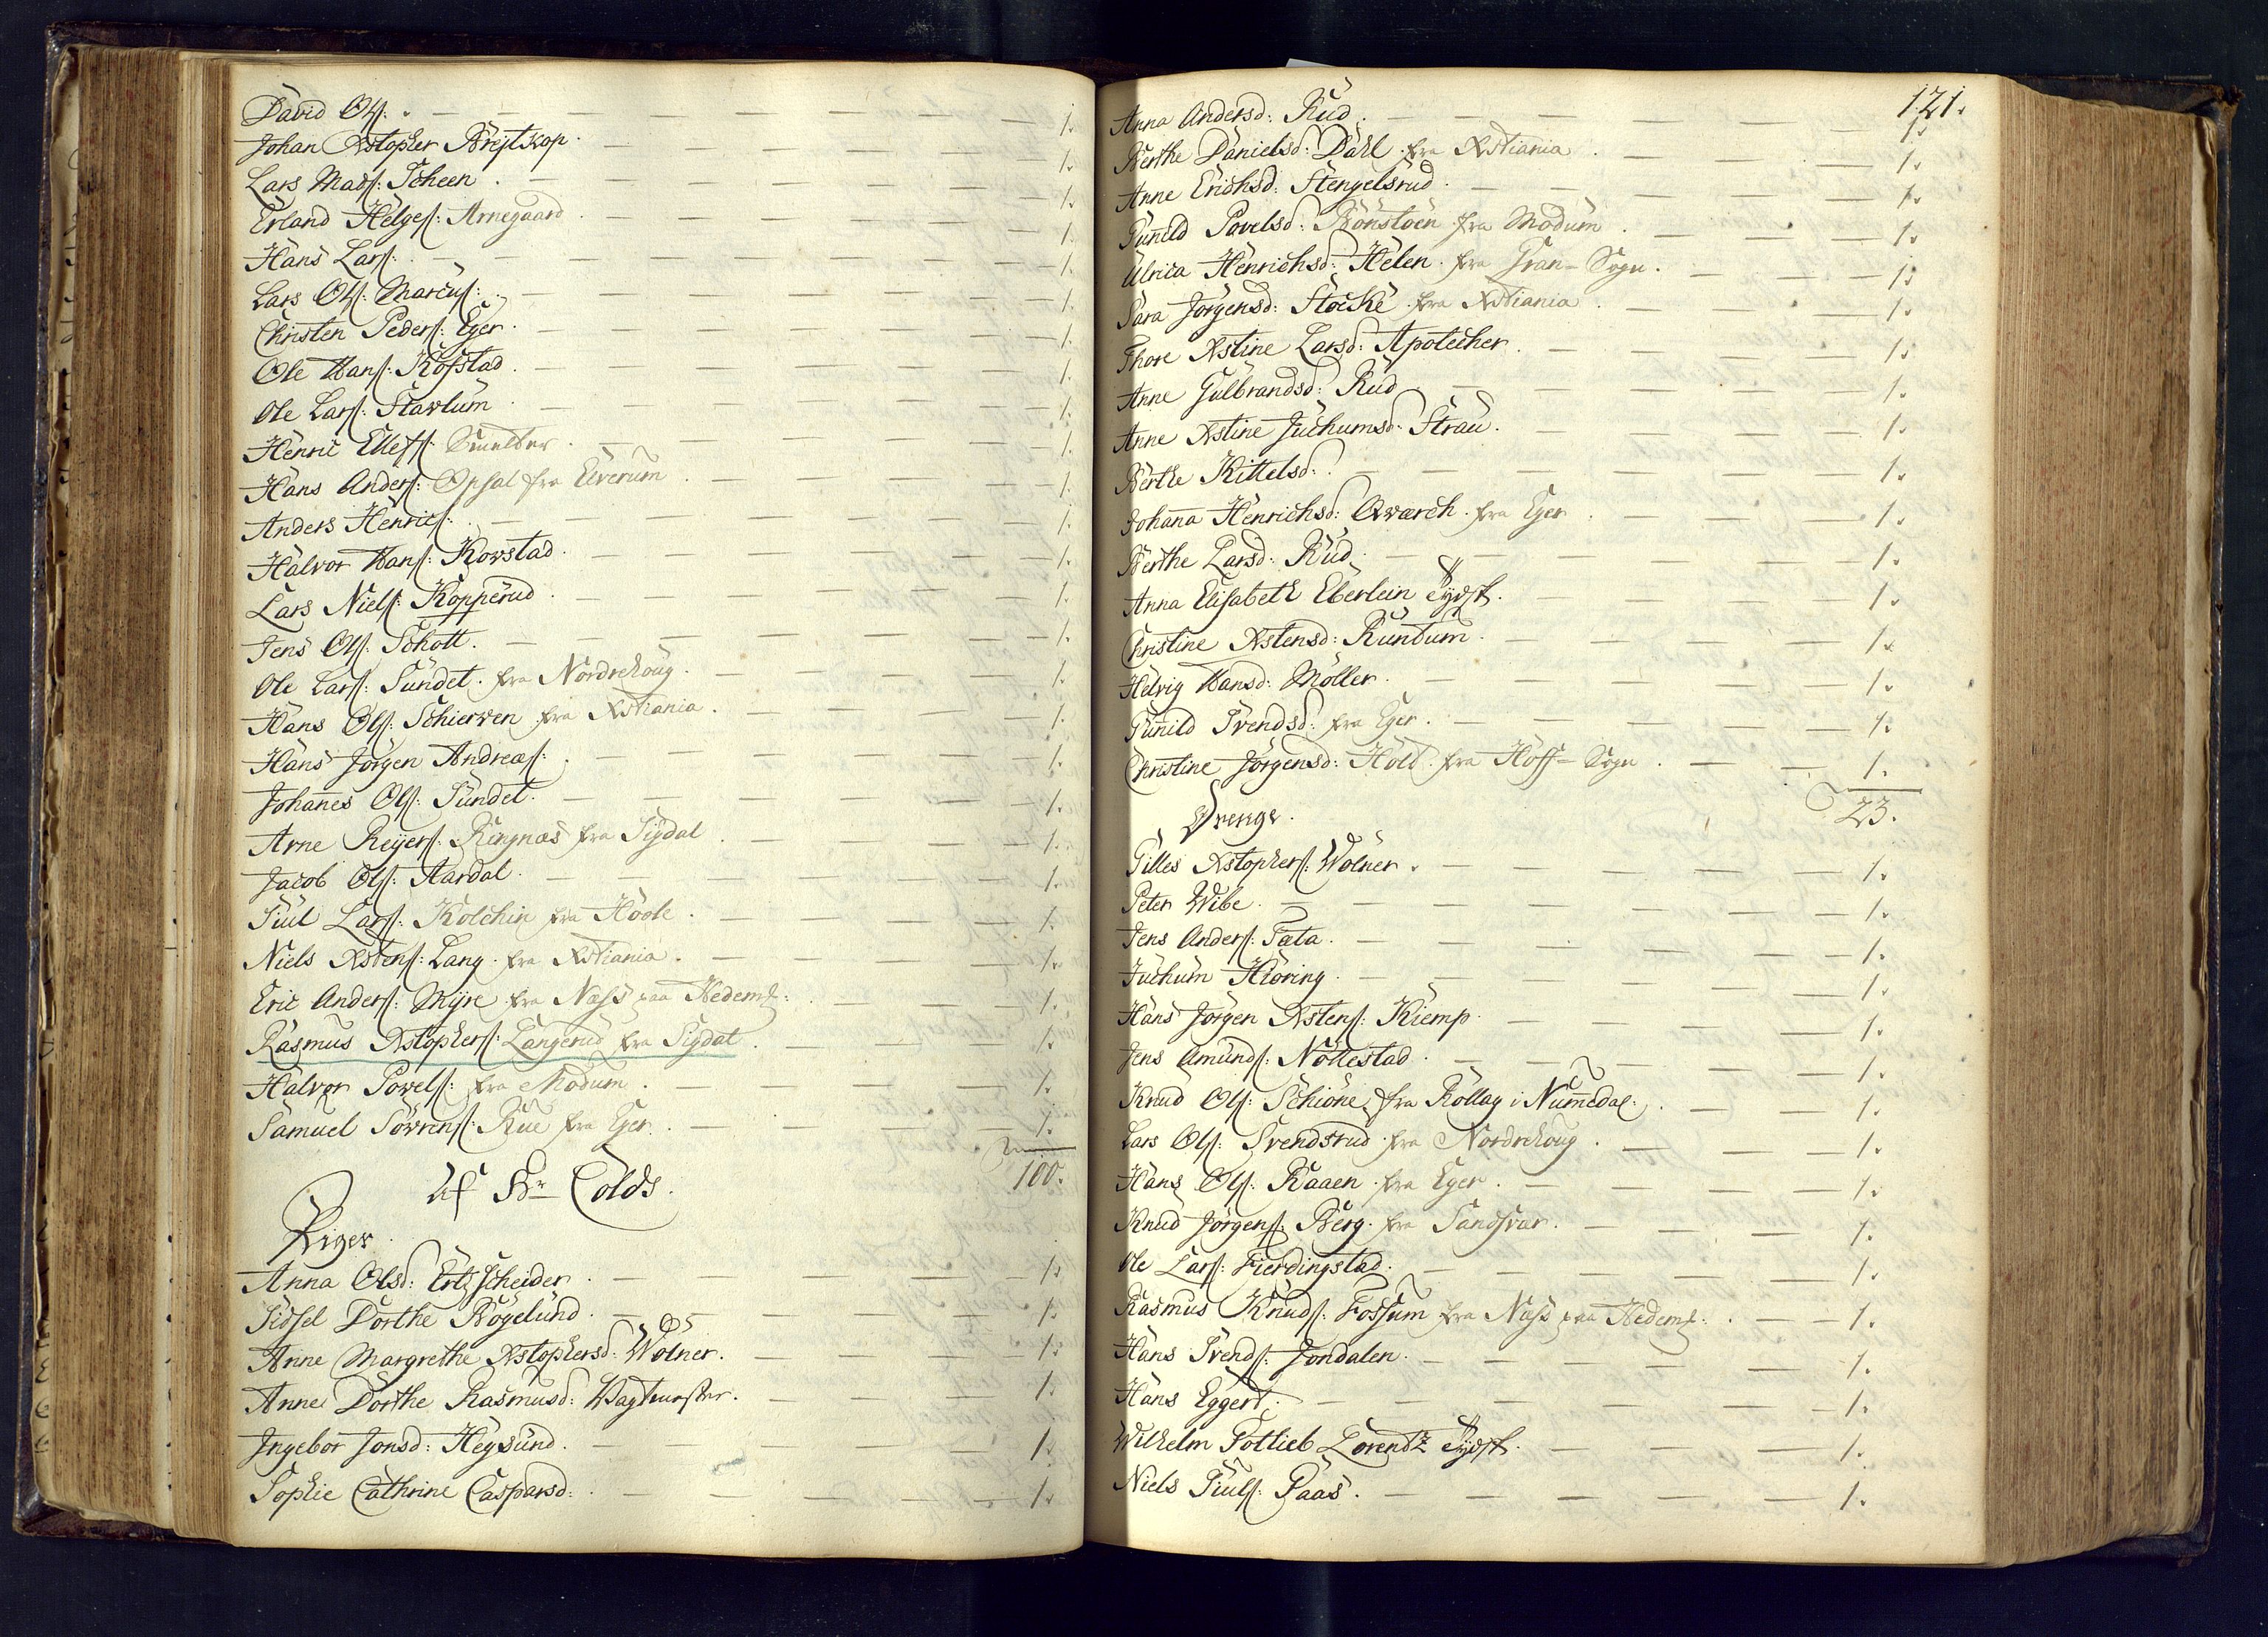 David Ols: 1.
Johan Xstopher Brejtkop. 1.
Lars Mads: Scheen. 1.
Erland Helges: Arnegaard. 1.
Hans Lars: 1.
Lars Ols: Marcus: 1.
Christen Peders: Eger. 1.
Ole Hans: Kofstad. 1.
Ole Lars: Stavlum. 1.
Henric Ellefs: Smelter. 1.
Hans Anders: Opsal fra Elverum. 1.
Anders Henrics: 1.
Halvor Hans: Kovstad. 1.
Lars Niels: Kopperud. 1.
Jens Ols: Schott. 1.
Ole Lars: Sundet. fra Nordrehoug. 1.
Hans Ols: Schierven fra Xstiania. 1.
Hans Jörgen Andreas: 1.
Johanes Ols: Sundet. 1.
Arne Reijers: Ringnæs fra Sigdal. 1.
Jacob Ols: Aardal. 1.
Juul Lars: Kolchin fra Hoole. 1.
Niels Xstens: Lang. fra Xstiania. 1.
Eric Anders: Myre fra Næss paa Hedem: 1.
Rasmus Xstophers: Langerud fra Sigdal. 1.
Halvor Povels: fra Modum. 1.
Samuel Sövrens: Rue fra Eger. 1.
100.
Af Hr Colds.
Piger.
Anna Olsd: Ertzscheider. 1.
Sidsel Dorthe Bögelund. 1.
Anne Margrethe Xstophersd: Wölner. 1.
Anne Dorthe Rasmusd: Wagtmester. 1.
Ingebor Jonsd: Hegsund. 1.
Sophie Cathrine Caspersd: 1.
121.
Anna Andersd: Rud. 1.
Berthe Danielsd: Dahl. fra Xstiania. 1.
Anne Erichsd: Stengelsrud. 1.
Gunild Povelsd: Bönstoen fra Modum. 1.
Ulrica Henrichsd: Helen. fra Gran-Sogn. 1.
Sara Jörgensd: Stocke fra Xstiania. 1.
Thore Xstine Larsd: Apotecher. 1.
Anne Gulbrandsd: Rud. 1.
Anne Xstine Juchumsd: Strau. 1.
Berthe Kittelsd: 1.
Johana Henrichsd: Qværch. fra Eger. 1.
Berthe Larsd: Rud. 1.
Anna Elisabeth Eberlein Tydsk. 1.
Christine Xstensd: Runtum. 1.
Helvig Hansd: Möller. 1.
Gunild Svendsd: fra Eger. 1.
Christine Jörgensd: Holt. fra Hoff-Sogn. 1.
23.
Drenge.
Gilles Xstophers: Wölner. 1.
Peter Wibe. 1.
Jens Anders: Tata. 1.
Juchum Hiöring. 1.
Hans Jörgen Xstens: Kiemp. 1.
Jens Amunds: Nöttestad. 1.
Knud Ols: Schiöne, fra Rollag i Numedal. 1.
Lars Ols: Svendsrud. fra Nordrehoug. 1.
Hans Ols: Raaen. fra Eger. 1.
Knud Jörgens: Berg. fra Sandsvær. 1.
Ole Lars: Fierdingstad. 1.
Rasmus Knuds: Fossum fra Næss paa Hedem: 1.
Hans Svends: Jondalen. 1.
Hans Eggert. 1.
Wilhelm Gotlieb Lorentz Tydsk. 1.
Niels Juuls: Paas. 1.